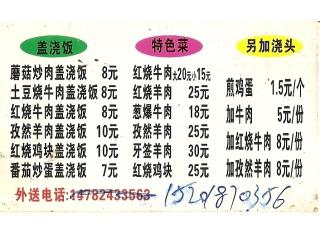 盖浇饭 特色菜 另加浇头
蘑菇炒肉盖浇饭 8元
土豆烧牛肉盖浇饭 8元
红烧牛肉盖浇饭 8元
孜然羊肉盖浇饭 10元
红烧鸡块盖浇饭 10元
番茄炒蛋盖浇饭 7元
红烧牛肉 大20元小15元
红烧羊肉 25元
葱爆牛肉 18元
孜然羊肉 25元
牙签羊肉 30元
红烧鸡块 25元
煎鸡蛋 1.5元/个
加牛肉 5元/份
加红烧牛肉 8元/份
加孜然羊肉 8元/份
外送电话:14782433563 15201870356